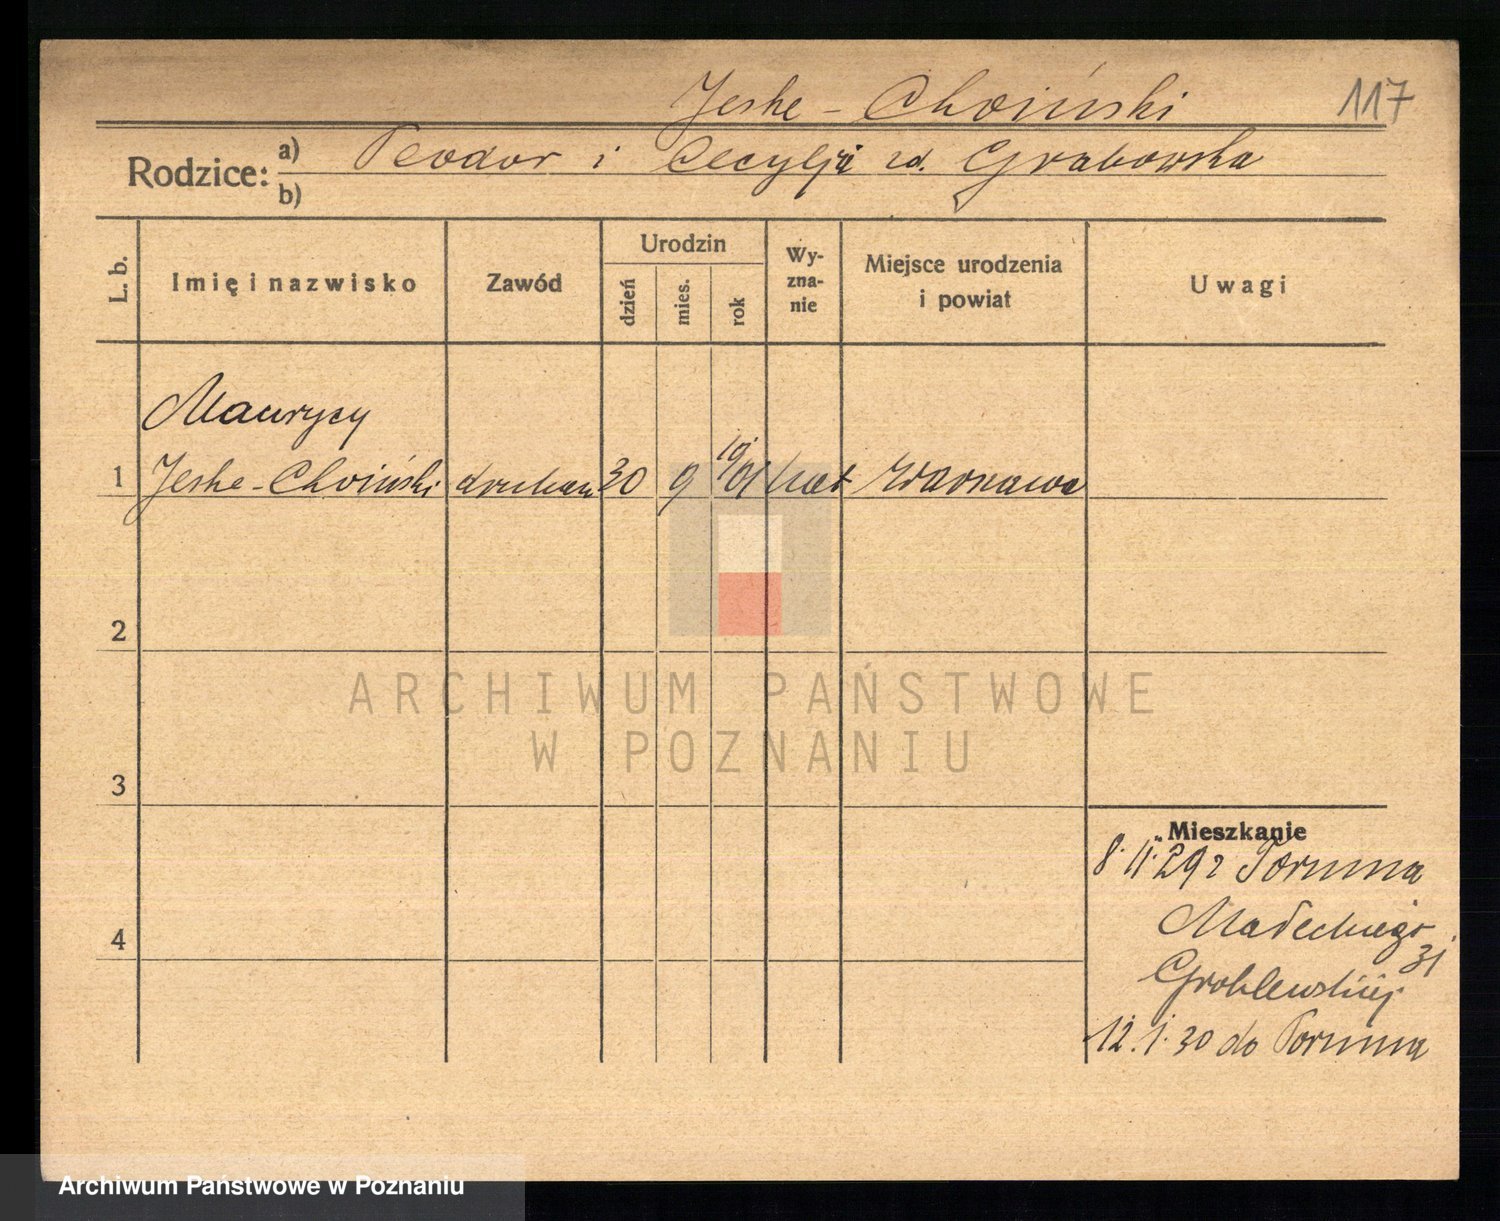 Jeske-Choiński 117
Rodzice: a) Teodor i Cecylja zd. Grabowska
b)
L. b.
Imię i nazwisko
Zawód
Urodzin
dzień
mies.
rok
Wy-
zna-
nie
Miejsce urodzenia
i powiat
Uwagi
Maurycy
1 Jeske-Choiński drukarz 30 9 1901 kat Warszawa
2
3
4
Mieszkanie
8.11.29 z Torunia
Małeckiego 31
12.1.30 do Torunia
ARCHIWUM PAŃSTWOWE
W POZNANIU
Archiwum Państwowe w Poznaniu